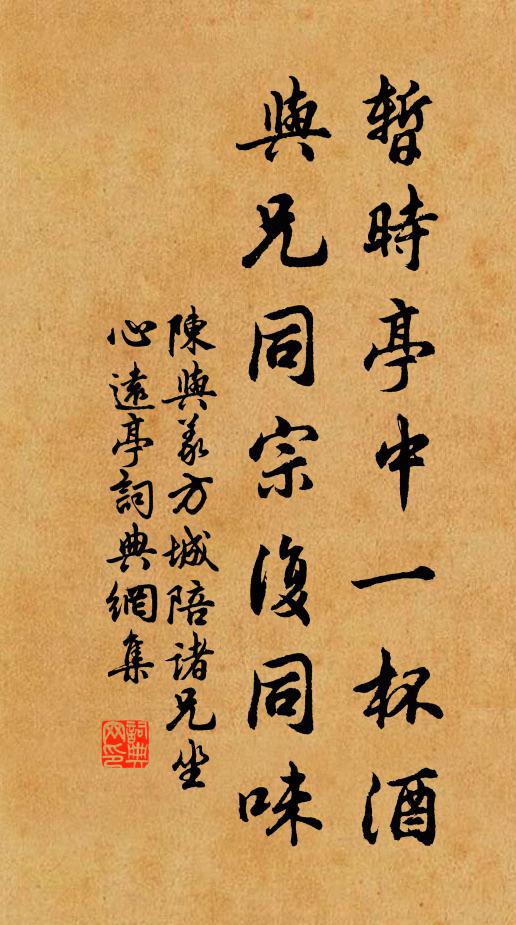 暫時亭中一杯酒
與兄同宗復同味
陳與義方城陪諸兄坐
心遠亭詞典網集
詞典网印